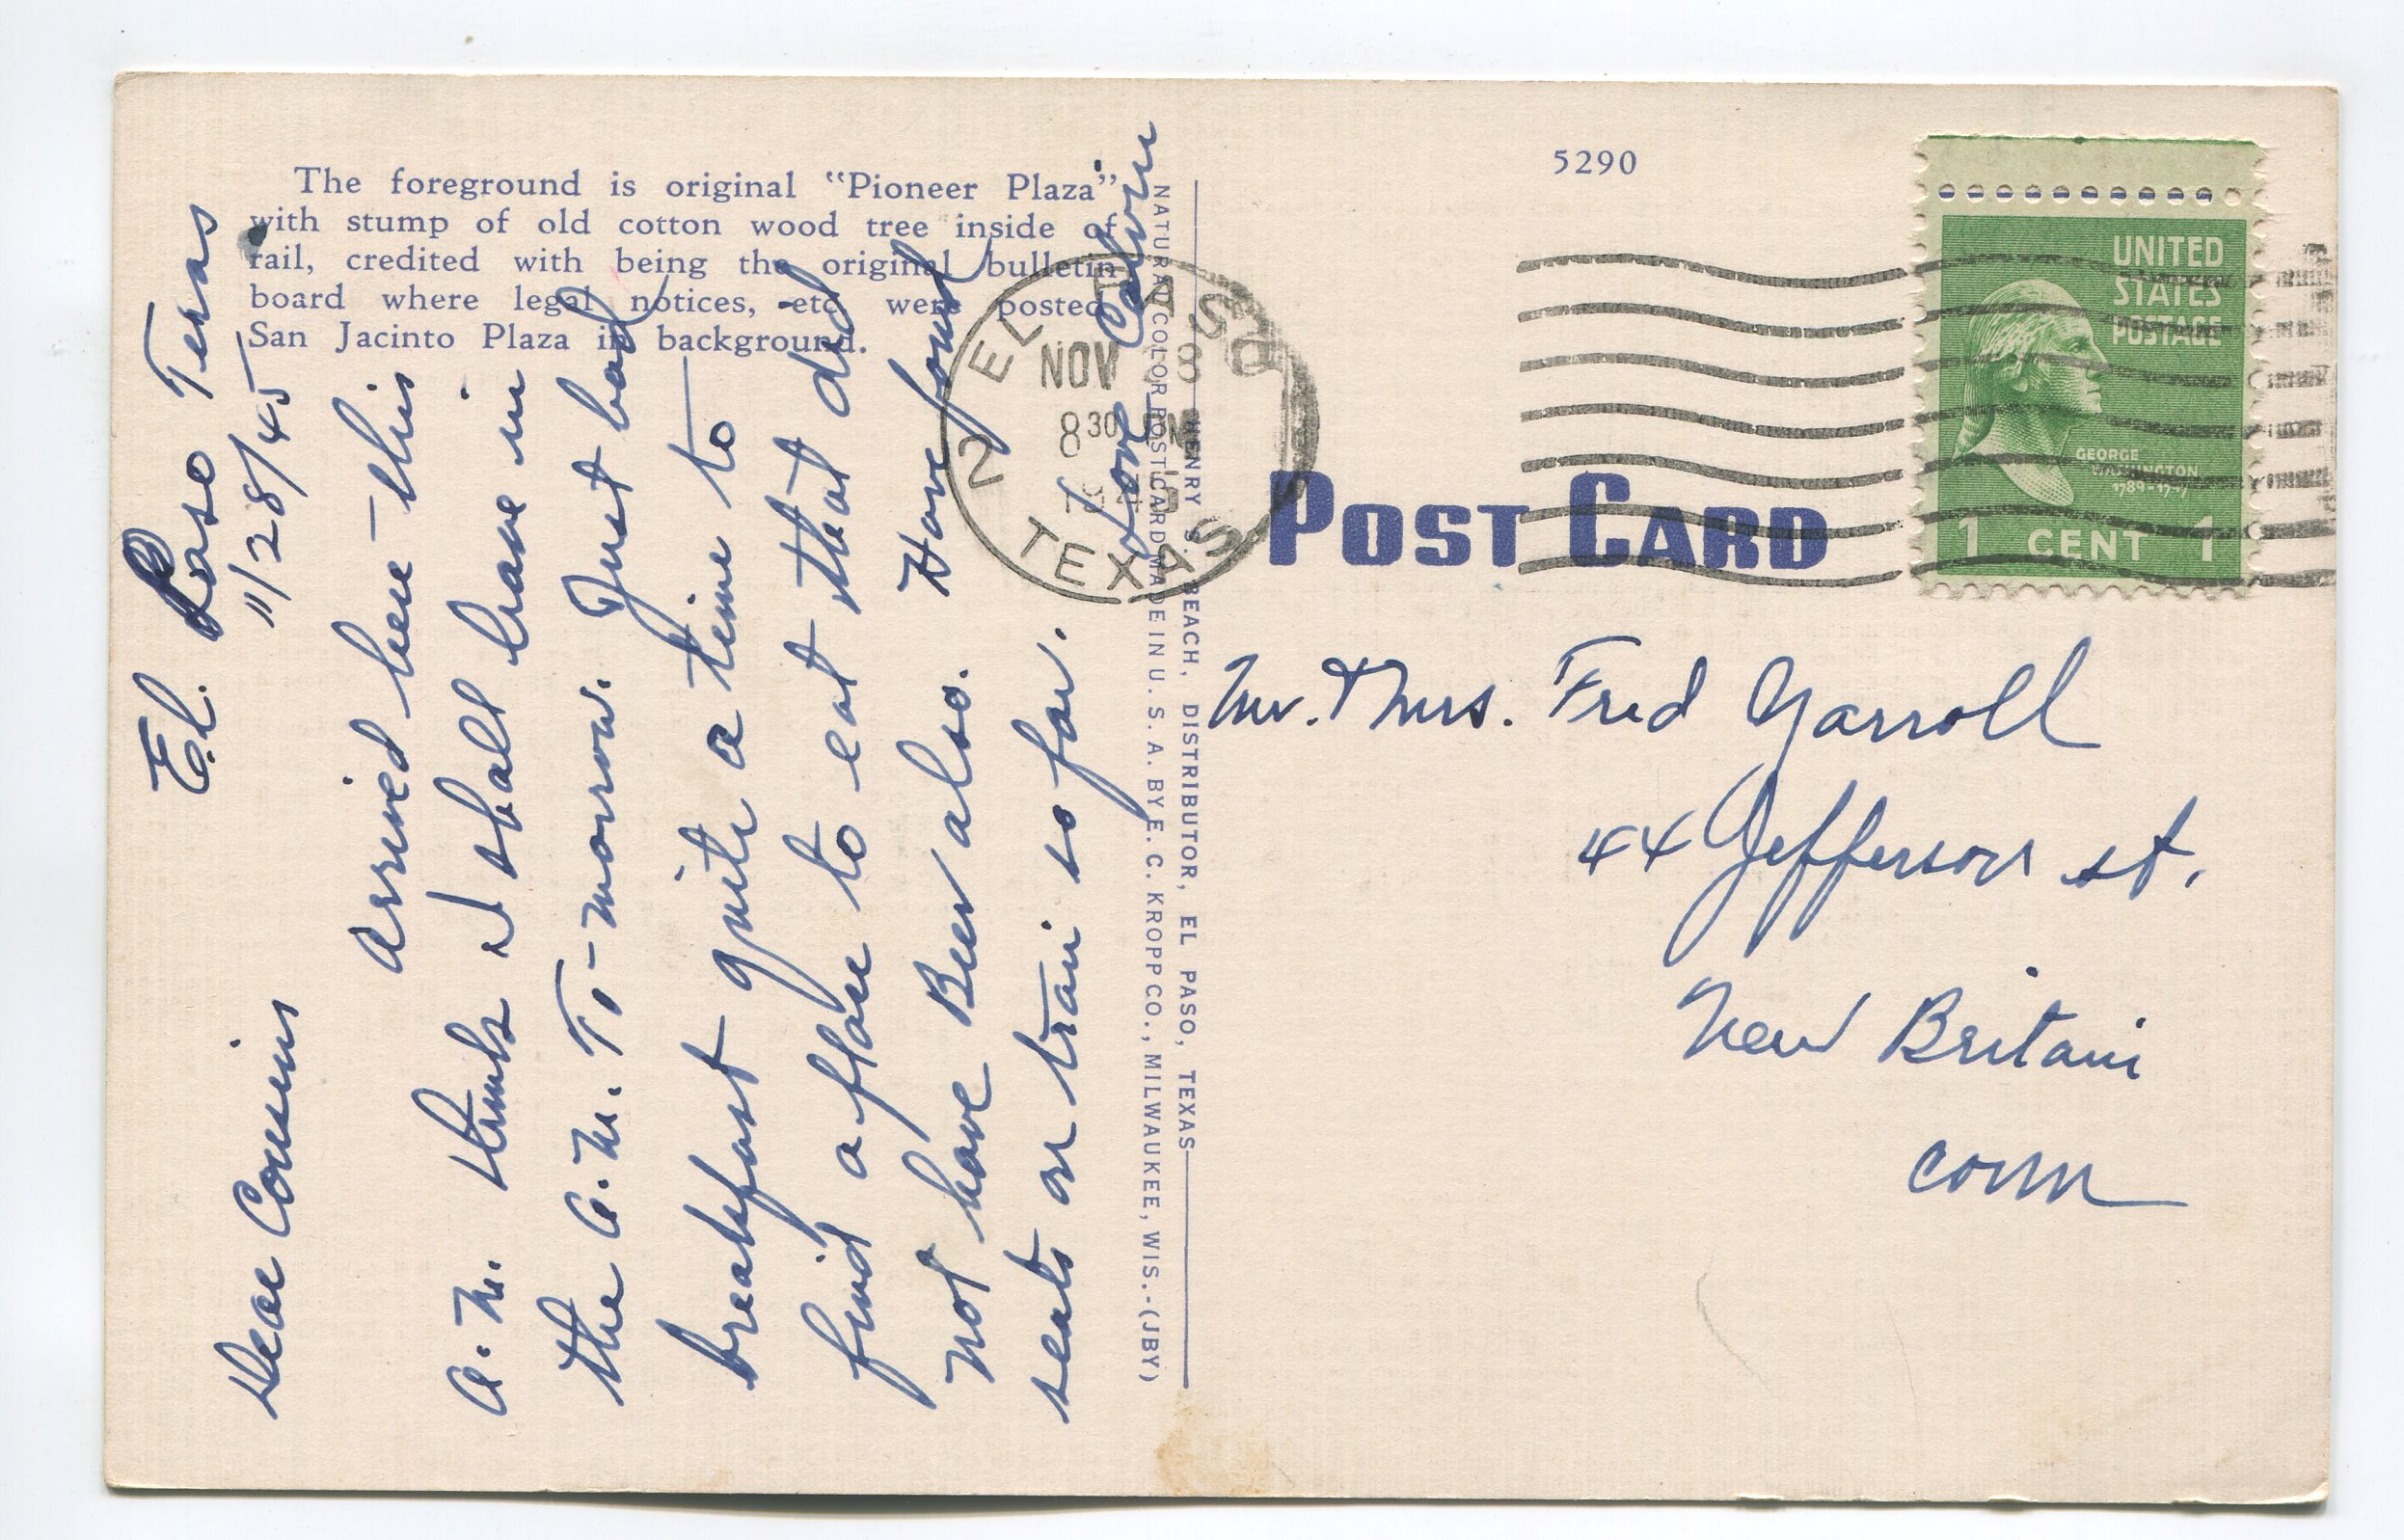 The foreground is original "Pioneer Plaza"
with stump of old cotton wood tree inside of
rail, credited with being the original bulletin
board where legal notices, etc were posted.
San Jacinto Plaza in background.
El. Paso Texas
11/28/45
Dear Cousins
Arrived here this
A.M. thinks I shall leave in
the A.M. To-morrow. Just had
breakfast quite a time to
find a place to eat that did
not have Beer also. Have found
seats on train so far.
Love Calvin
NATURAL COLOR POST CARD MADE IN U. S. A. BY E. C. KROPP CO., MILWAUKEE, WIS.-(JBY)
HENRY S. BEACH, DISTRIBUTOR, EL PASO, TEXAS
5290
EL PASO
NOV 28
8 30 PM
2
TEXAS
UNITED
STATES
POSTAGE
GEORGE
WASHINGTON
1789-1797
1 CENT 1
POST CARD
Mr. & Mrs. Fred Yarroll
44 Jefferson St.
New Britain
Conn